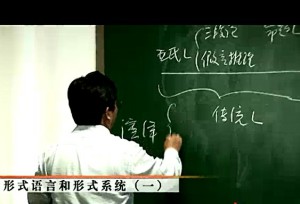 三段论
亚氏L
假言推理
传统L
演译
形式语言和形式系统（一）